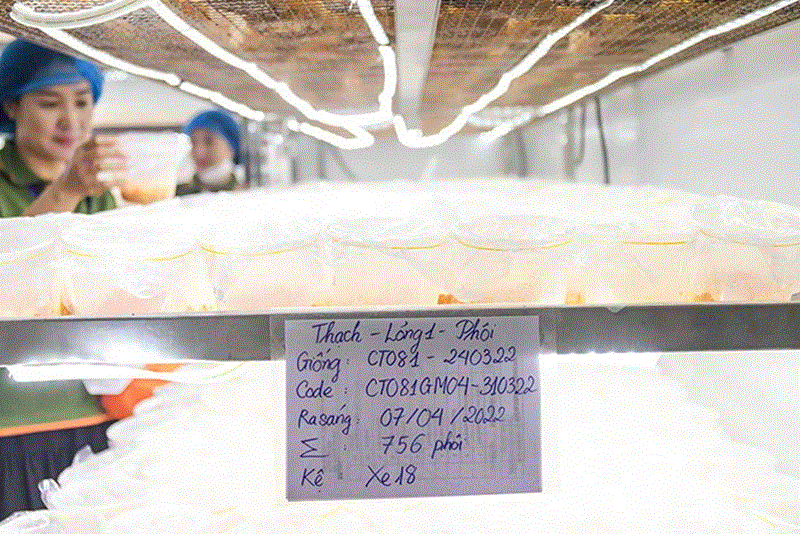 Thạch - Lỏng 1 - Phôi
Giống: CT081 - 240322
Code: CT081GM04-310322
Ra sáng: 07/04/2022
Σ: 756 phôi
Kệ Xe 18